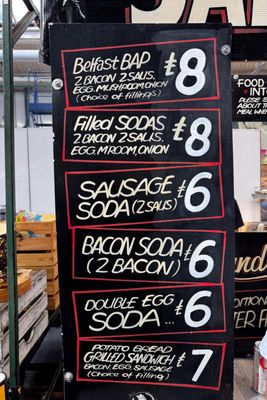 Belfast BAP £8
2 BACON 2 SAUS.
EGG. MUSHROOM. ONION
(choice of fillings)
Filled SODAS £8
2 BACON 2 SAUS.
EGG. M.ROOM. ONION
SAUSAGE £6
SODA (2 SAUS)
BACON SODA £6
(2 BACON)
DOUBLE EGG £6
SODA ...
POTATO BREAD £7
GRILLED SANDWICH
BACON, EGG, SAUSAGE
(choice of filling)
FOOD